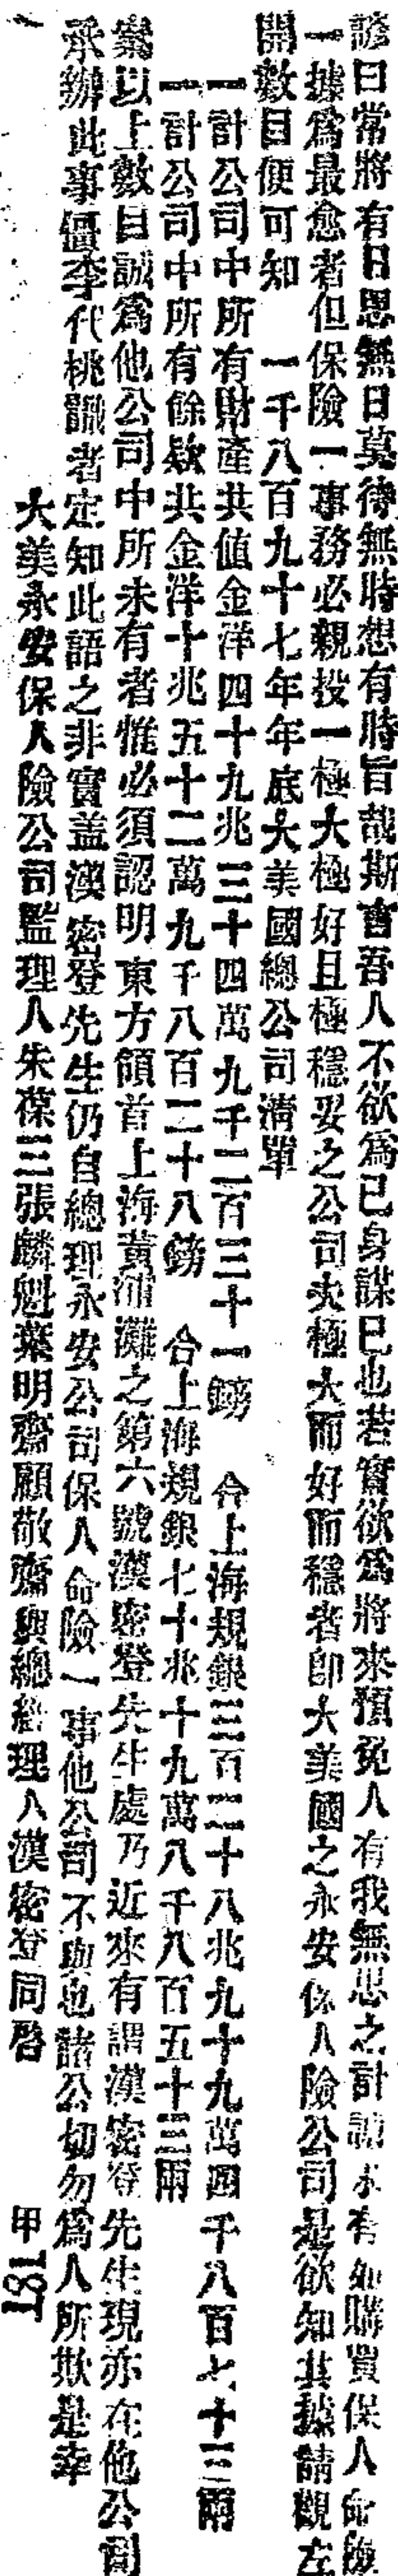 諺曰常將有日思無日莫待無時想有時旨哉斯言吾人不欲爲己身謀已也若實欲爲將來預免人有我無思之計請未有如購買保人命險
一據爲最愈者但保險一事務必親投一極大極好且極穩妥之公司夫極大而好而穩者卽大美國之永安保人險公司是欲知其據請觀左
開數目便可知　一千八百九十七年年底大美國總公司淸單
一計公司中所有財產共值金洋四十九兆三十四萬九千二百三十一鎊　合上海規銀三百二十八兆九十九萬四千八百七十三兩
一計公司中所有餘欵共金洋十兆五十二萬九千八百二十八鎊　合上海規銀七十兆十九萬八千八百五十三兩
案以上數目誠爲他公司中所未有者惟必須認明東方領首上海黃浦灘之第六號漢密登先生處乃近來有謂漢密登先生現亦在他公司
承辦此事僵李代桃識者定知此語之非實蓋漢密登先生仍自總理永安公司保人命險一事他公司不與也諸公切勿爲人所欺是幸
大美永安保人險公司監理人朱葆三張麟魁葉明齋顧敬齋與總經理人漢密登同啓　甲181